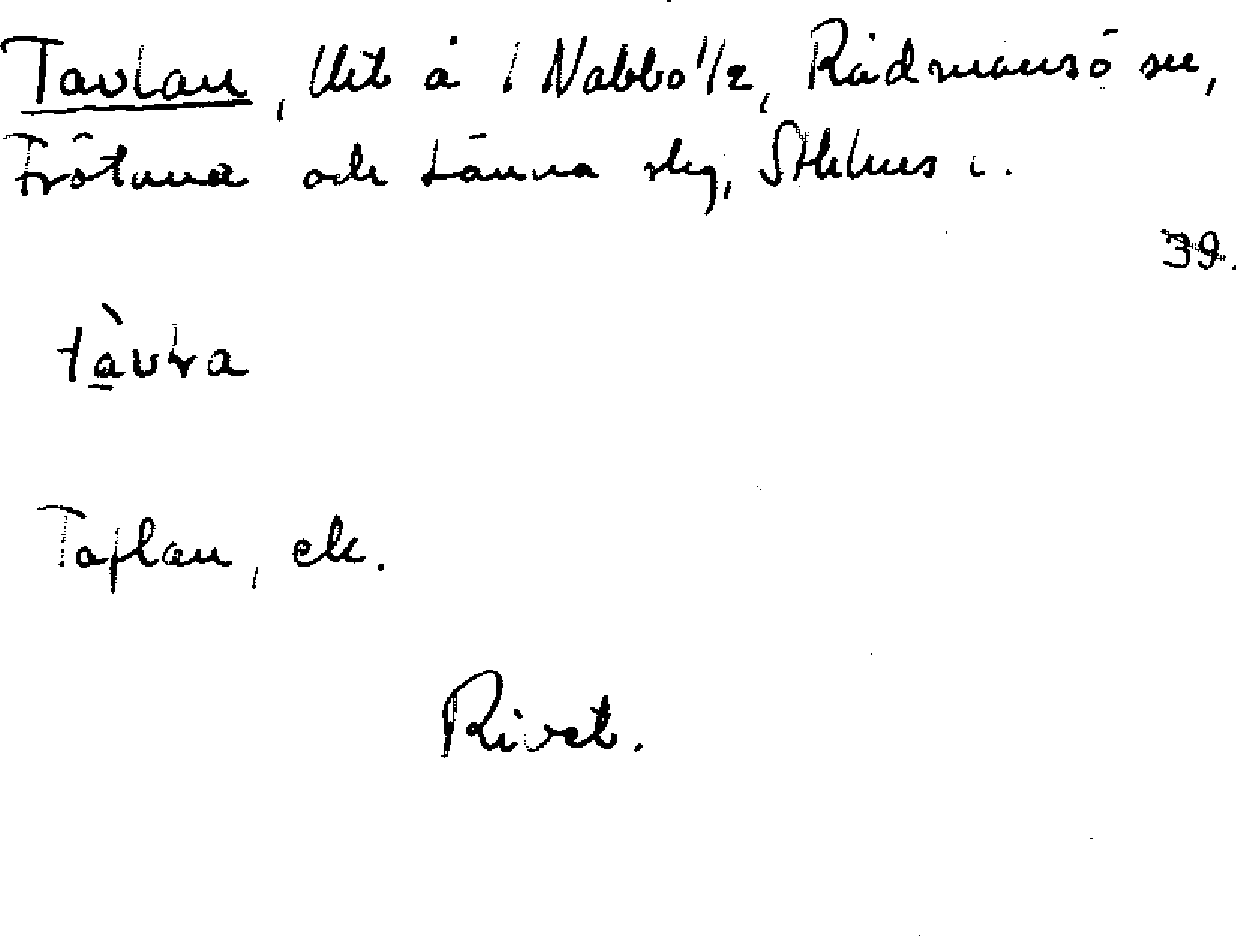 Tavlan, litt å 1 Nabbo 1/2, Rådmansö sn,
Frötuna och Länna slg, Sthlms l.
39.
tàvra
Taflan, ek.
Rivet.